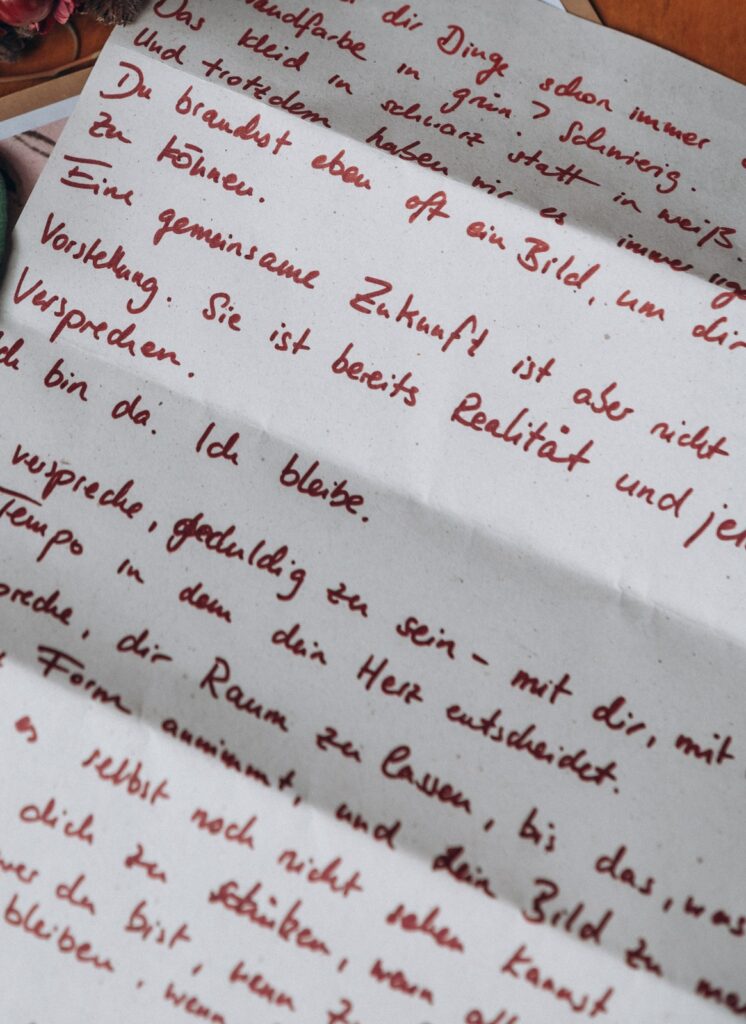 dir Dinge schon immer
Wandfarbe in grün? Schwierig.
Das Kleid in schwarz statt in weiß.
Und trotzdem haben wir es immer
Du brauchst eben oft ein Bild, um dir
zu können.
Eine gemeinsame Zukunft ist aber nicht
Vorstellung. Sie ist bereits Realität und
Versprechen.
bin da. Ich bleibe.
verspreche, geduldig zu sein - mit dir, mit
Tempo in dem dein Herz entscheidet.
dir Raum zu lassen, bis das, was
Form annimmt, und dein Bild zu
es selbst noch nicht sehen kannst
dich zu schützen, wenn
du bist, wenn
bleiben, wenn